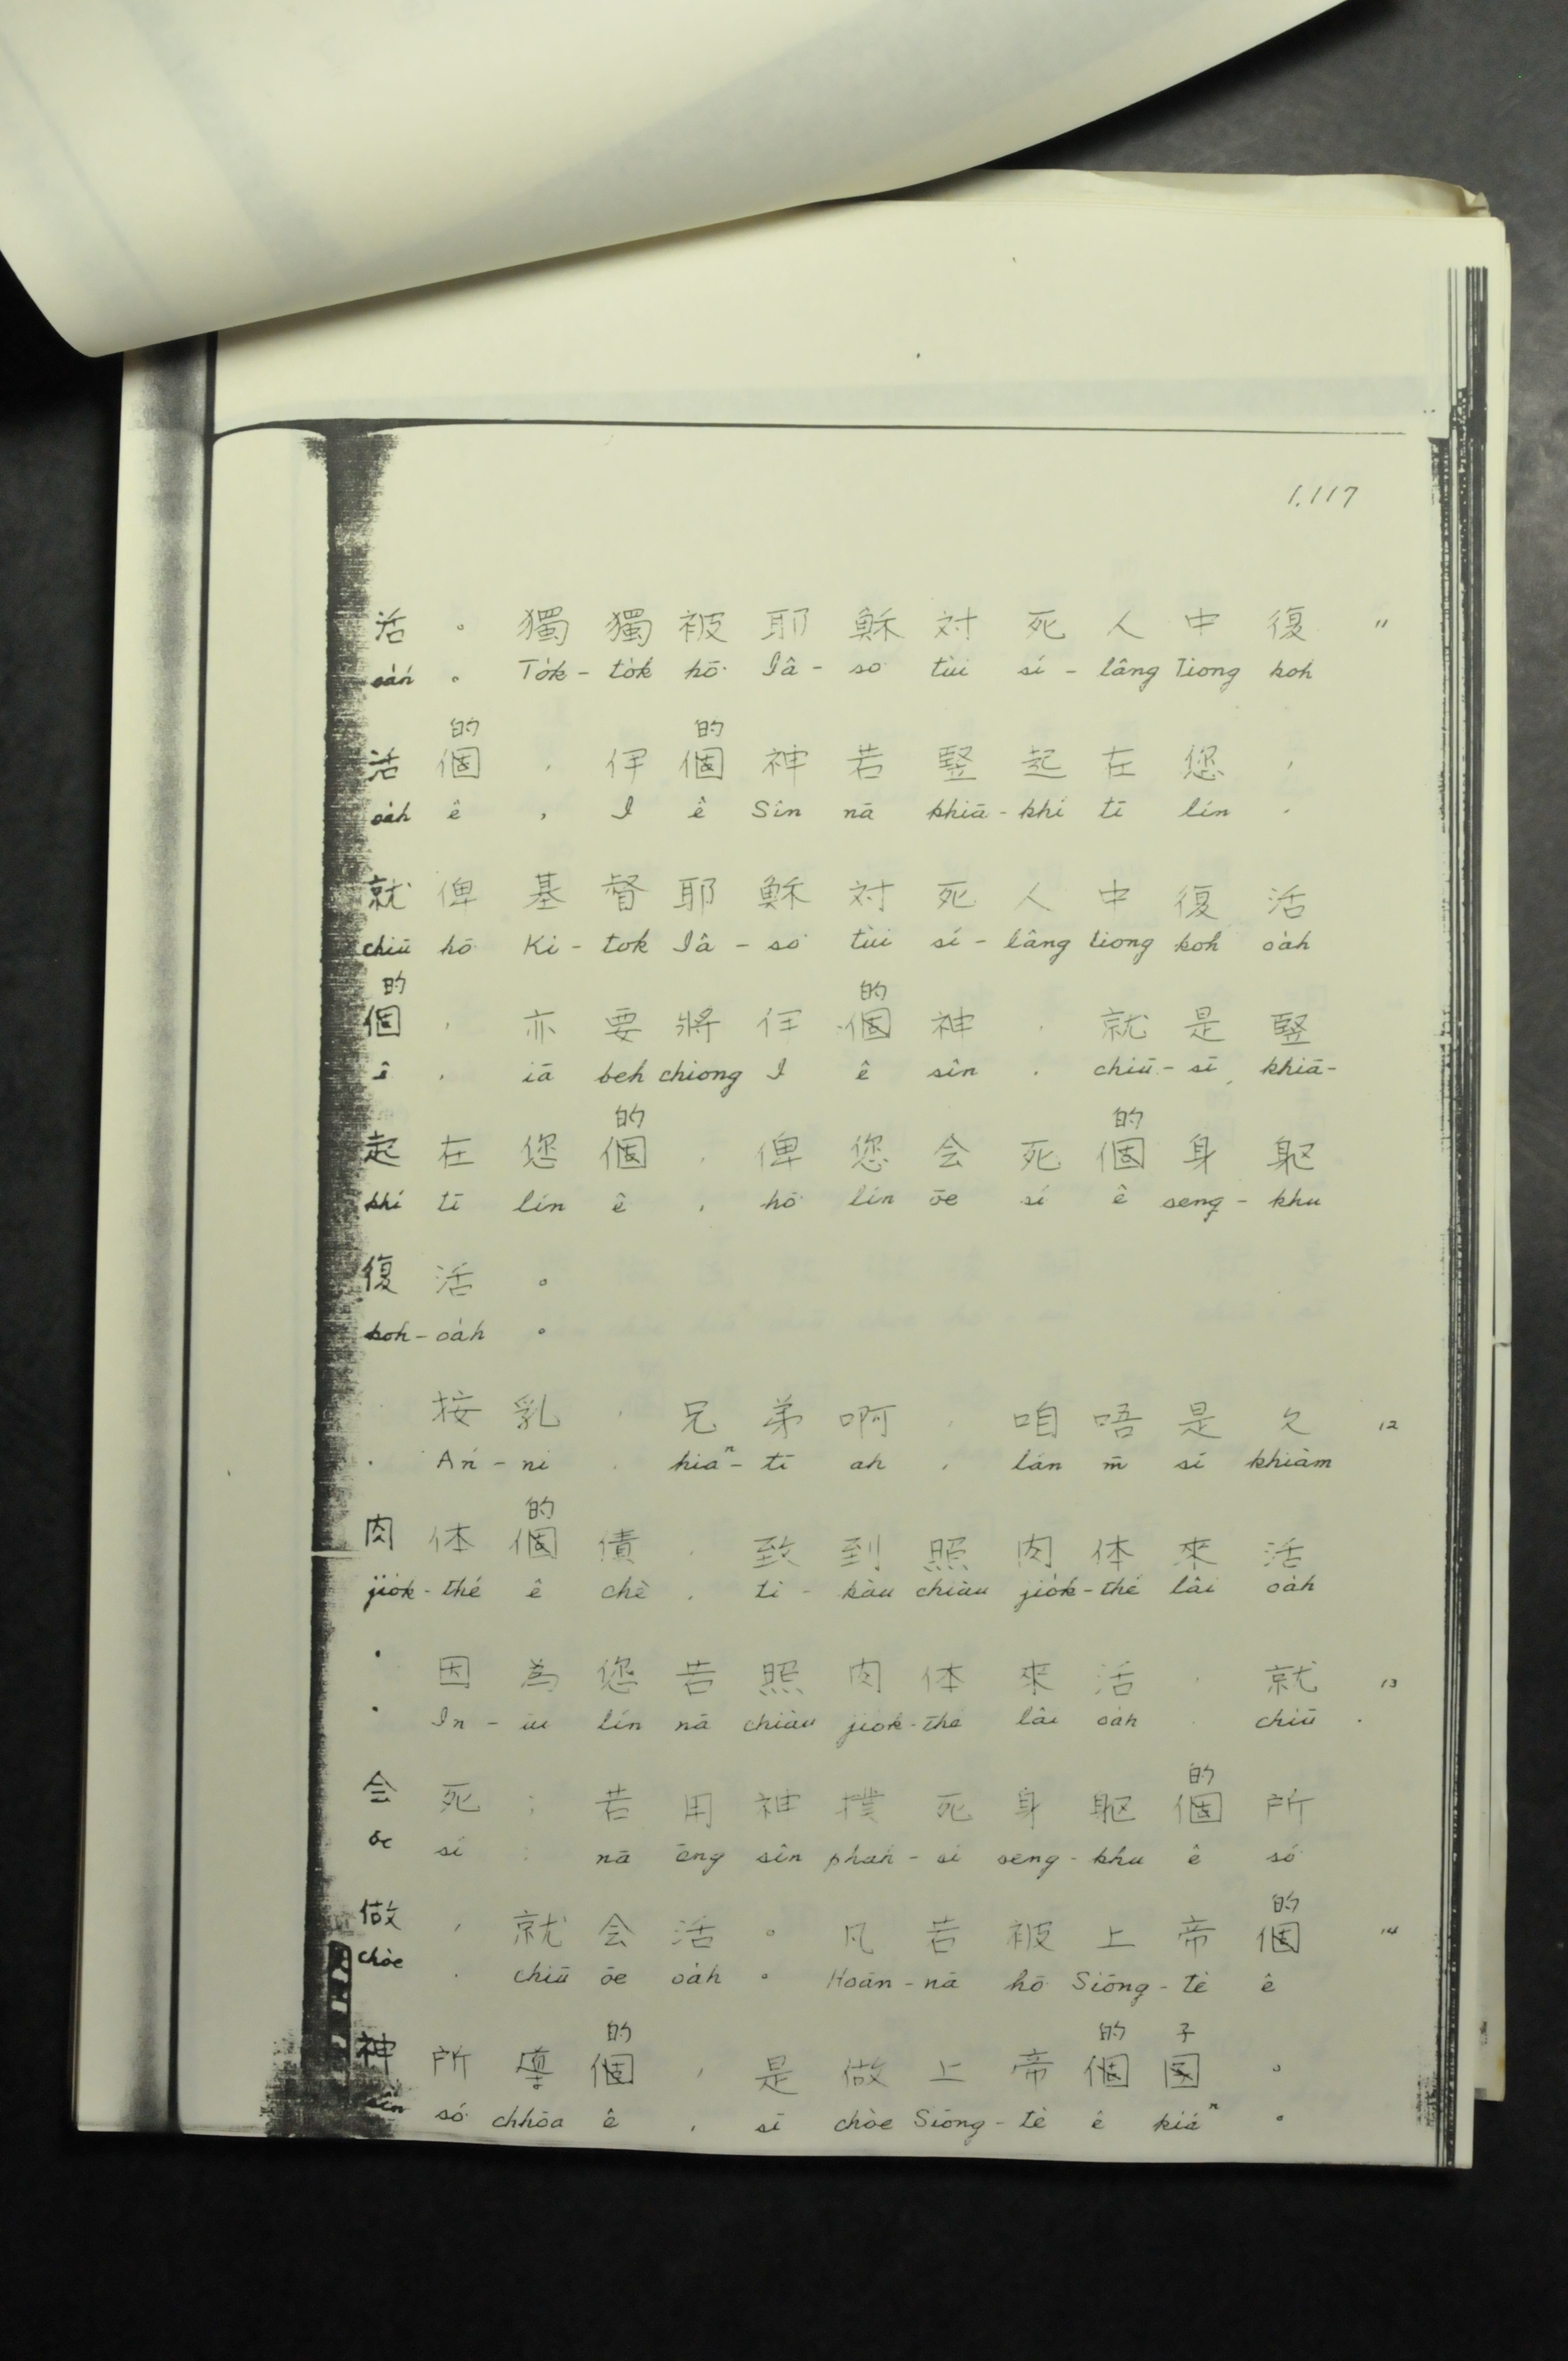 1.117
活。獨獨被耶穌対死人中復 11
oa̍h。To̍k-to̍k hō͘ Iâ-so͘ tùi sí-lâng Tiong koh
的 的
活個，伊個神若竪起在您，
oa̍h ê, I ê Sîn nā khiā-khí tī lín,
就俾基督耶穌対死人中復活
chiū hō͘ Ki-tok Iâ-so͘ tùi sí-lâng tiong koh oa̍h
的 的
個，亦要將伊個神，就是竪
ê, iā beh chiong I ê sîn, chiū-sī khiā-
的 的
起在您個，俾您会死個身軀
khí tī lín ê, hō͘ lín ōe sí ê seng-khu
復活。
koh-oa̍h。
按乳，兄弟啊，咱唔是欠 12
An-ni, hiaⁿ-tī ah, lán m̄ sī khiàm
的
肉体個債，致到照肉体來活
jio̍k-thé ê chè, tì-kàu chiàu jio̍k-thé lâi oa̍h
。因為您若照肉体來活，就 13
。In-ūi lín nā chiàu jio̍k-thé lâi oa̍h, chiū
的
会死；若用神撲死身軀個所
ōe sí; nā ēng sîn phah-sí seng-khu ê só͘
的
做，就会活。凡若被上帝個 14
chòe, chiū ōe oa̍h。Hoān-nā hō͘ Siōng-tè ê
的 的 子
神所導個，是做上帝個囝。
sîn só͘ chhōa ê, sī chòe Siōng-tè ê kiáⁿ。